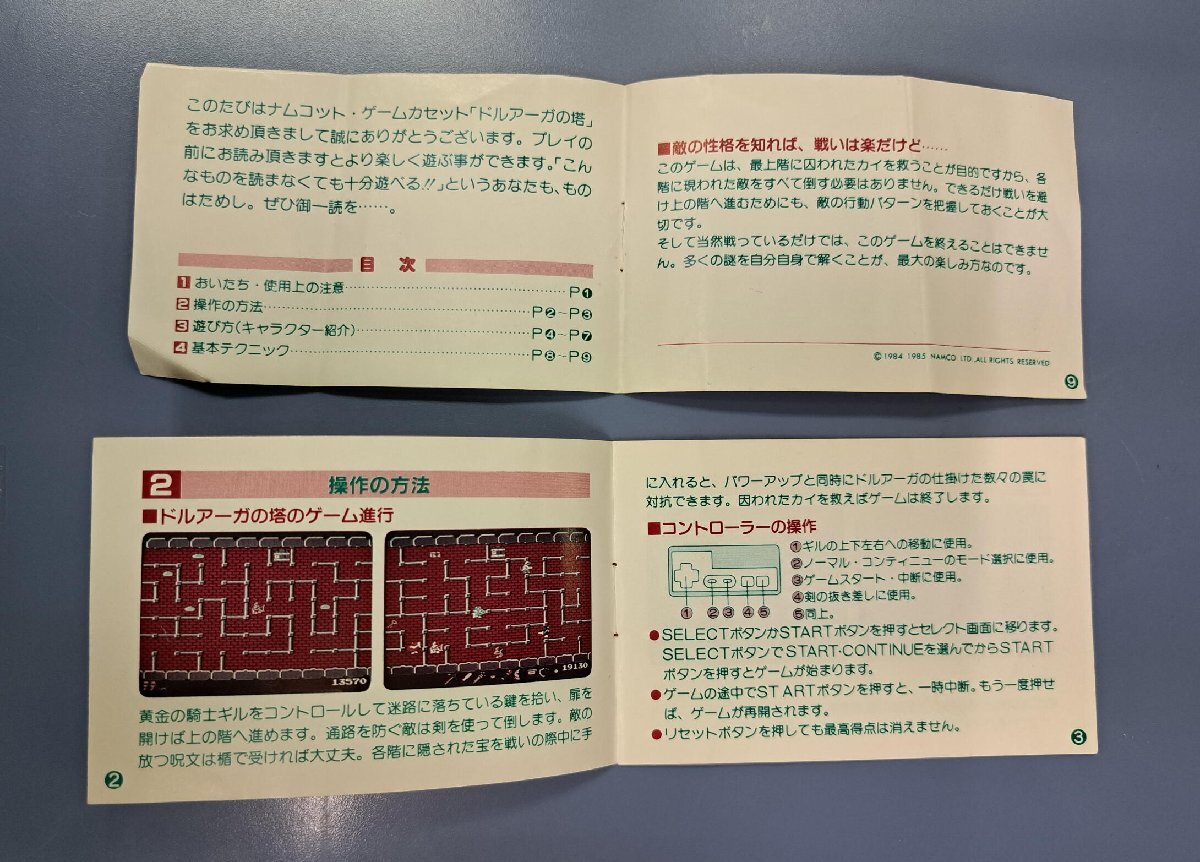 このたびはナムコット・ゲームカセット「ドルアーガの塔」
をお求め頂きまして誠にありがとうございます。プレイの
前にお読み頂きますとより楽しく遊ぶ事ができます。「こん
なものを読まなくても十分遊べる!!」というあなたも、もの
はためし。ぜひ御一読を……。
目 次
1 おいたち・使用上の注意……P❶
2 操作の方法……P❷~P❸
3 遊び方(キャラクター紹介)……P❹~P❼
4 基本テクニック……P❽~P❾
■敵の性格を知れば、戦いは楽だけど……
このゲームは、最上階に囚われたカイを救うことが目的ですから、各
階に現われた敵をすべて倒す必要はありません。できるだけ戦いを避
け上の階へ進むためにも、敵の行動パターンを把握しておくことが大
切です。
そして当然戦っているだけでは、このゲームを終えることはできませ
ん。多くの謎を自分自身で解くことが、最大の楽しみ方なのです。
©1984 1985 NAMCO LTD.,ALL RIGHTS RESERVED
❾
2 操作の方法
■ドルアーガの塔のゲーム進行
13570
19130
黄金の騎士ギルをコントロールして迷路に落ちている鍵を拾い、扉を
開けば上の階へ進めます。通路を防ぐ敵は剣を使って倒します。敵の
放つ呪文は楯で受ければ大丈夫。各階に隠された宝を戦いの際中に手
❷
に入れると、パワーアップと同時にドルアーガの仕掛けた数々の罠に
対抗できます。囚われたカイを救えばゲームは終了します。
■コントローラーの操作
①ギルの上下左右への移動に使用。
②ノーマル・コンティニューのモード選択に使用。
③ゲームスタート・中断に使用。
④剣の抜き差しに使用。
⑤同上。
① ② ③ ④ ⑤
●SELECTボタンかSTARTボタンを押すとセレクト画面に移ります。
SELECTボタンでSTART・CONTINUEを選んでからSTART
ボタンを押すとゲームが始まります。
●ゲームの途中でSTARTボタンを押すと、一時中断。もう一度押せ
ば、ゲームが再開されます。
●リセットボタンを押しても最高得点は消えません。
❸